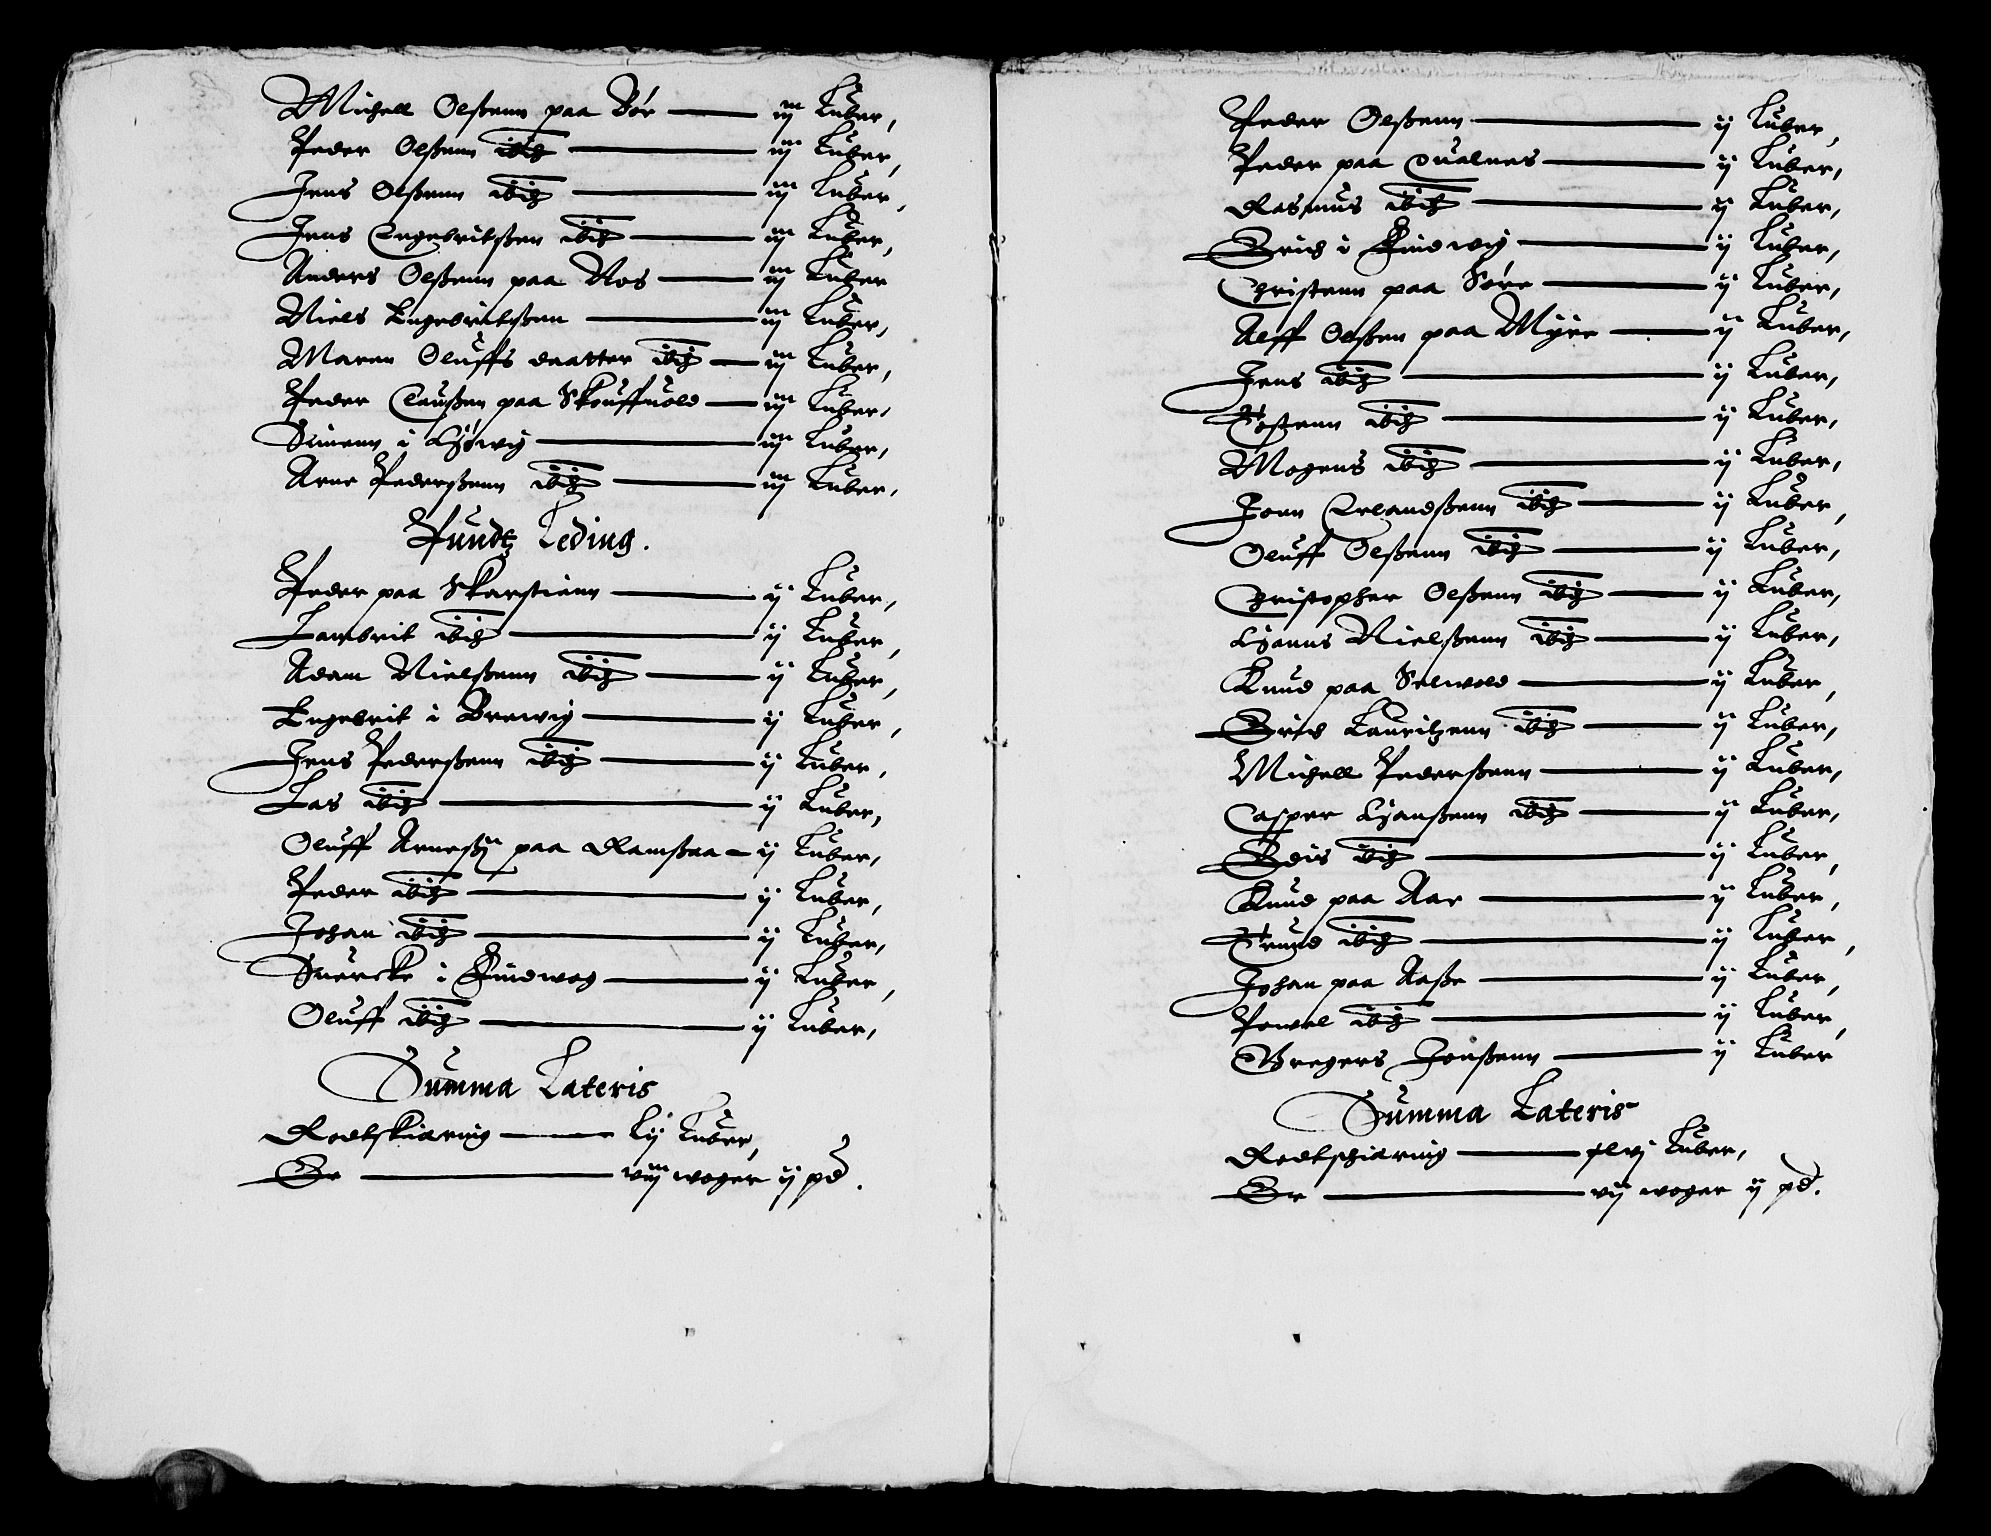 Michell Olßenn paa Bør — iij Luber,
Peder Olßenn ibid — iij Luber,
Jens Olßenn ibid — iij Luber,
Jens Engebritßen ibid — iij Luber,
Anders Olßenn paa Aas — iij Luber
Niels Engebritßen — iij Luber,
Maren Oluffs daatter ibid — iij Luber,
Peder Claußen paa Skouffuold — iij Luber,
Simenn i Hoßwig — iij Luber,
Arne Pederßenn ibid — iij Luber,
Pundtz Leding.
Peder paa Skarstienn — ij Luber,
Lambrit ibid — ij Luber,
Adam Nielßenn ibid — ij Luber,
Engebrit i Brewig — ij Luber,
Jens Pederßenn ibid — ij Luber,
Las ibid — ij Luber,
Oluff Arneßn paa Ramßaa — ij Luber,
Peder ibid — ij Luber,
Johan ibid — ij Luber,
Suercke i Kindwog — ij Luber,
Oluff ibid — ij Luber,
Summa Lateris
Rodtskiæring — Lij Luber,
Er — viij woger ij pd.
Peder Olßenn — ij Luber,
Peder paa Qualnes — ij Luber,
Rasmus ibid — ij Luber,
Erid i Kindwig — ij Luber,
Christenn paa Børe — ij Luber,
Alff Olßen paa Myre — ij Luber,
Jens ibid — ij Luber,
Tostenn ibid — ij Luber,
Mogens ibid — ij Luber,
Jonn Erlandßenn ibid — ij Luber,
Oluff Olßenn ibid — ij Luber,
Christopher Olßenn ibid — ij Luber,
Hanns Nielßenn ibid — ij Luber,
Knud paa Selwold — ij Luber,
Erid Lauritzenn ibid — ij Luber,
Michell Pederßenn — ij Luber,
Casper Hanßenn ibid — ij Luber,
Edis ibid — ij Luber,
Knud paa Aar — ij Luber,
Trund ibid — ij Luber,
Johan paa Aaße — ij Luber,
Powel ibid — ij Luber,
Gregers Jonßenn — ij Luber
Summa Lateris
Rodtschiæring — xlvj Luber,
Er — vij woger ij pd.